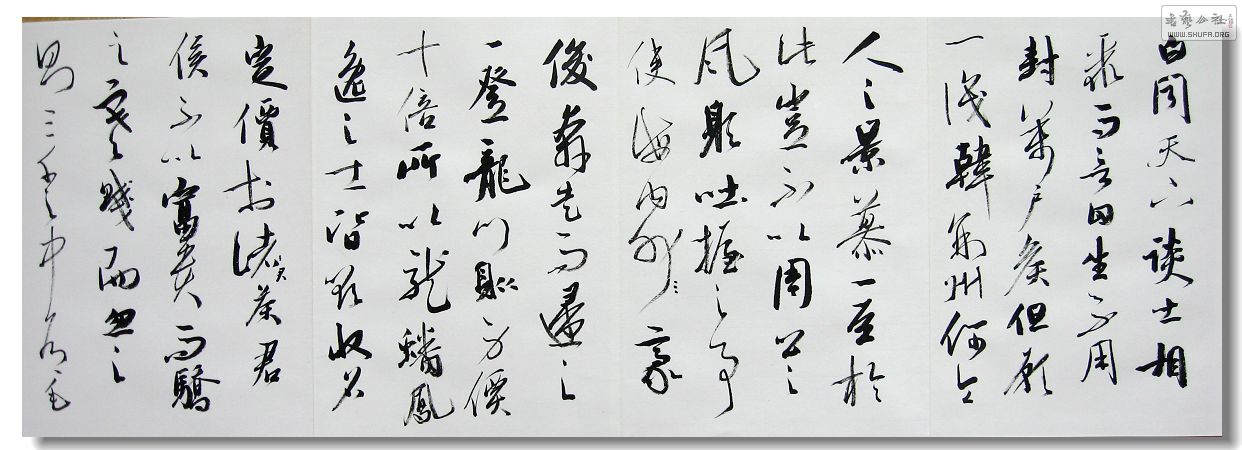 書藝公社
WWW.SHUFA.ORG
白聞天下談士相
聚而言曰生不用
封萬戶侯但願
一識韓荊州何令
人之景慕一至於
此豈不以周公之
風躬吐握之事
使海內豪
俊奔走而歸之
一登龍門聲價
十倍所以龍蟠鳳
逸之士皆欲收名
定價於君
侯不以富貴而驕
之寒賤而忽之
則三千之中有毛